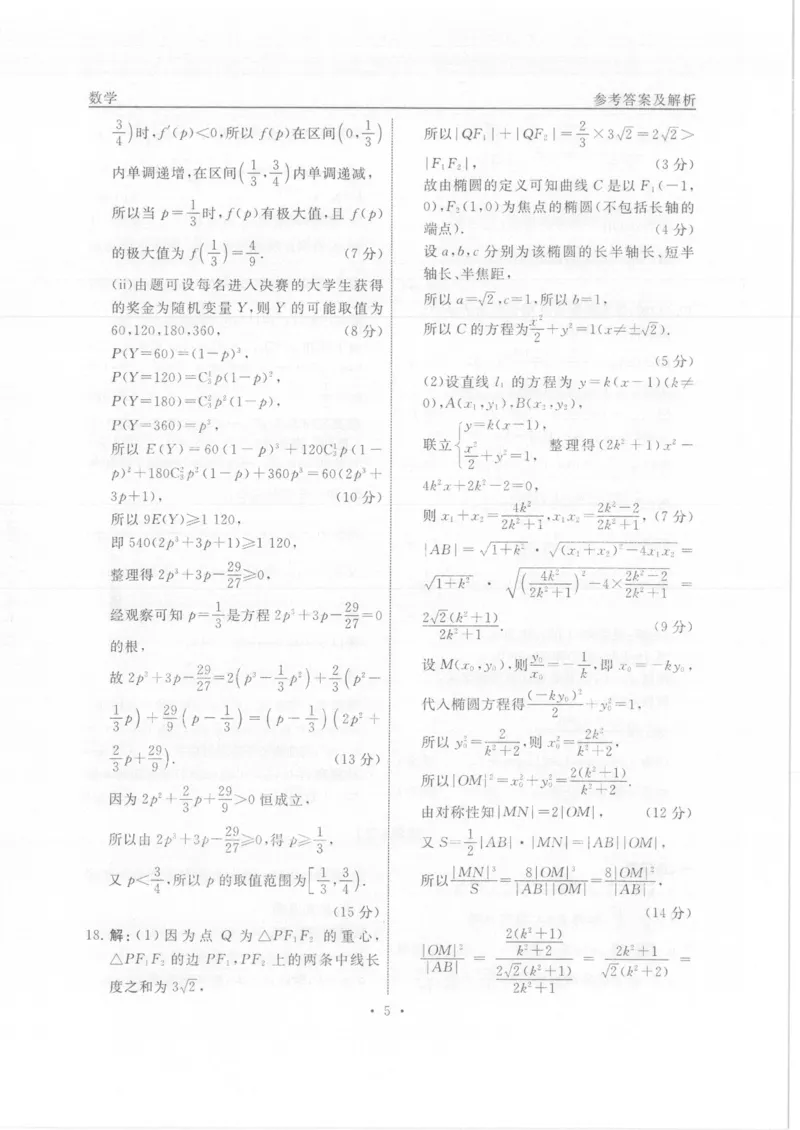 数学
参考答案及解析
3/4)时,f′(p)<0,所以 f(p)在区间(0,1/3)
内单调递增,在区间(1/3,3/4)内单调递减,
所以当 p=1/3时,f(p)有极大值,且 f(p)
的极大值为 f(1/3)=4/9. (7 分)
(ii)由题可设每名进入决赛的大学生获得
的奖金为随机变量 Y,则 Y 的可能取值为
60,120,180,360, (8 分)
P(Y=60)=(1-p)³,
P(Y=120)=C₃¹p(1-p)²,
P(Y=180)=C₃²p²(1-p),
P(Y=360)=p³,
所以 E(Y)=60(1-p)³+120C₃¹p(1-
p)²+180C₃²p²(1-p)+360p³=60(2p³+
3p+1), (10 分)
所以 9E(Y)≥1 120,
即 540(2p³+3p+1)≥1 120,
整理得 2p³+3p-29/27≥0,
经观察可知 p=1/3是方程 2p³+3p-29/27=0
的根,
故 2p³+3p-29/27=2(p³-1/3p²)+2/3(p²-
1/3p)+29/9(p-1/3)=(p-1/3)(2p²+
2/3p+29/9). (13 分)
因为 2p²+2/3p+29/9>0 恒成立,
所以由 2p³+3p-29/27≥0,得 p≥1/3,
又 p<3/4,所以 p 的取值范围为[1/3,3/4).
(15 分)
18. 解:(1)因为点 Q 为△PF₁F₂ 的重心,
△PF₁F₂ 的边 PF₁,PF₂ 上的两条中线长
度之和为 3√2,
所以|QF₁|+|QF₂|=2/3×3√2=2√2>
|F₁F₂|, (3 分)
故由椭圆的定义可知曲线 C 是以 F₁(-1,
0),F₂(1,0)为焦点的椭圆(不包括长轴的
端点). (4 分)
设 a,b,c 分别为该椭圆的长半轴长、短半
轴长、半焦距,
所以 a=√2,c=1,所以 b=1,
所以 C 的方程为x²/2+y²=1(x≠±√2).
(5 分)
(2)设直线 l₁ 的方程为 y=k(x-1)(k≠
0),A(x₁,y₁),B(x₂,y₂),
联立{y=k(x-1), x²/2+y²=1, 整理得(2k²+1)x²-
4k²x+2k²-2=0,
则 x₁+x₂=4k²/(2k²+1),x₁x₂=(2k²-2)/(2k²+1), (7 分)
|AB|=√(1+k²)·√((x₁+x₂)²-4x₁x₂)=
√(1+k²)·√((4k²/(2k²+1))²-4×(2k²-2)/(2k²+1))=
2√2(k²+1)/(2k²+1). (9 分)
设 M(x₀,y₀),则y₀/x₀=-1/k,即 x₀=-ky₀,
代入椭圆方程得(-ky₀)²/2+y₀²=1,
所以 y₀²=2/(k²+2),则 x₀²=2k²/(k²+2),
所以|OM|²=x₀²+y₀²=2(k²+1)/(k²+2).
由对称性知|MN|=2|OM|, (12 分)
又 S=1/2|AB|·|MN|=|AB||OM|,
所以|MN|³/S=8|OM|³/(|AB||OM|)=8|OM|²/|AB|,
(14 分)
|OM|²/|AB|=(2(k²+1)/(k²+2))/(2√2(k²+1)/(2k²+1))=(2k²+1)/(√2(k²+2))=
• 5 •